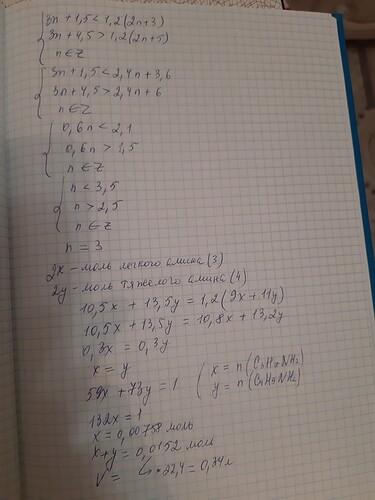 3n + 1,5 < 1,2(2n+3)
3n + 4,5 > 1,2(2n+5)
n ∈ Z
3n + 1,5 < 2,4n + 3,6
3n + 4,5 > 2,4n + 6
n ∈ Z
0,6n < 2,1
0,6n > 1,5
n ∈ Z
n < 3,5
n > 2,5
n ∈ Z
n = 3
2x - моль легкого амина (3)
2y - моль тяжелого амина (4)
10,5x + 13,5y = 1,2(9x + 11y)
10,5x + 13,5y = 10,8x + 13,2y
0,3x = 0,3y
x = y
59x + 73y = 1 ( x = n(C3H7NH2)
y = n(C4H9NH2)
132x = 1
x = 0,00758 моль
x+y = 0,0152 моль
V = ↳ • 22,4 = 0,34 л